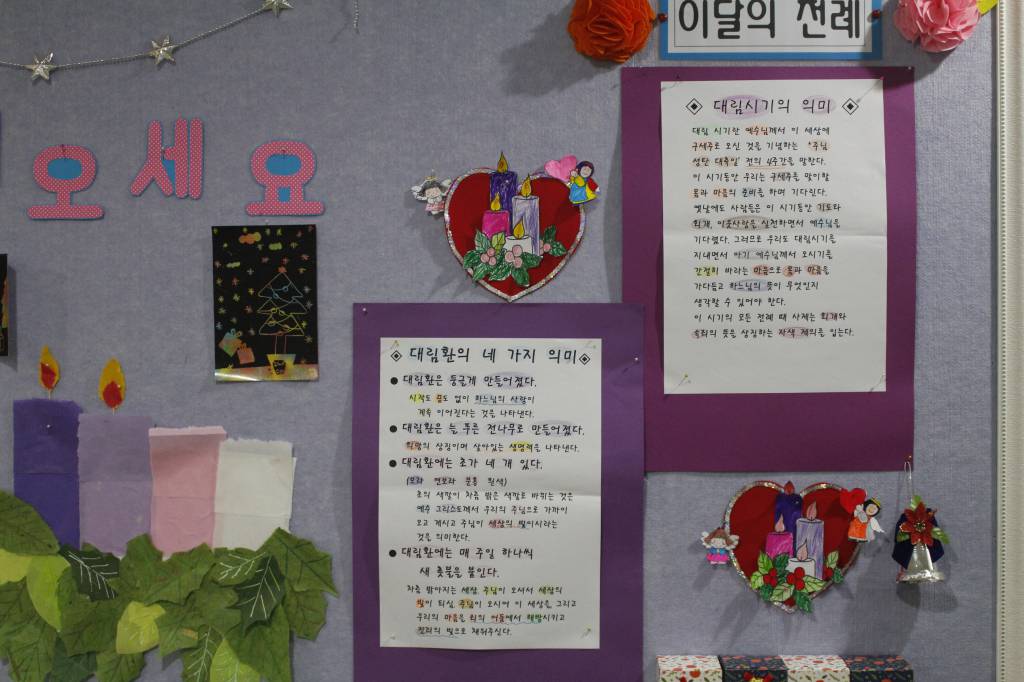 오세요
이달의 전례
대림시기의 의미
대림 시기란 예수님께서 이 세상에
구세주로 오신 것을 기념하는 '주님
성탄 대축일' 전의 4주간을 말한다.
이 시기동안 우리는 구세주를 맞이할
몸과 마음의 준비를 하며 기다린다.
옛날에도 사람들은 이 시기동안 기도와
회개, 이웃사랑을 실천하면서 예수님을
기다렸다. 그러므로 우리도 대림시기를
지내면서 아기 예수님께서 오시기를
간절히 바라는 마음으로 몸과 마음을
가다듬고 하느님의 뜻이 무엇인지
생각할 수 있어야 한다.
이 시기의 모든 전례 때 사제는 회개와
속죄의 뜻을 상징하는 자색 제의를 입는다.
대림환의 네 가지 의미
● 대림환은 둥글게 만들어졌다.
시작도 끝도 없이 하느님의 사랑이
계속 이어진다는 것을 나타낸다.
● 대림환은 늘 푸른 전나무로 만들어졌다.
희망의 상징이며 살아있는 생명력을 나타낸다.
● 대림환에는 초가 네 개 있다.
(보라 연보라 분홍 흰색)
초의 색깔이 차츰 밝은 색깔로 바뀌는 것은
예수 그리스도께서 우리의 주님으로 가까이
오고 계시고 주님이 세상의 빛이시라는
것을 의미한다.
● 대림환에는 매 주일 하나씩
새 촛불을 붙인다.
차츰 밝아지는 세상, 주님이 오셔서 세상의
빛이 되심. 주님이 오시어 이 세상을 그리고
우리의 마음을 죄의 어둠에서 해방시키고
진리의 빛으로 채워주신다.